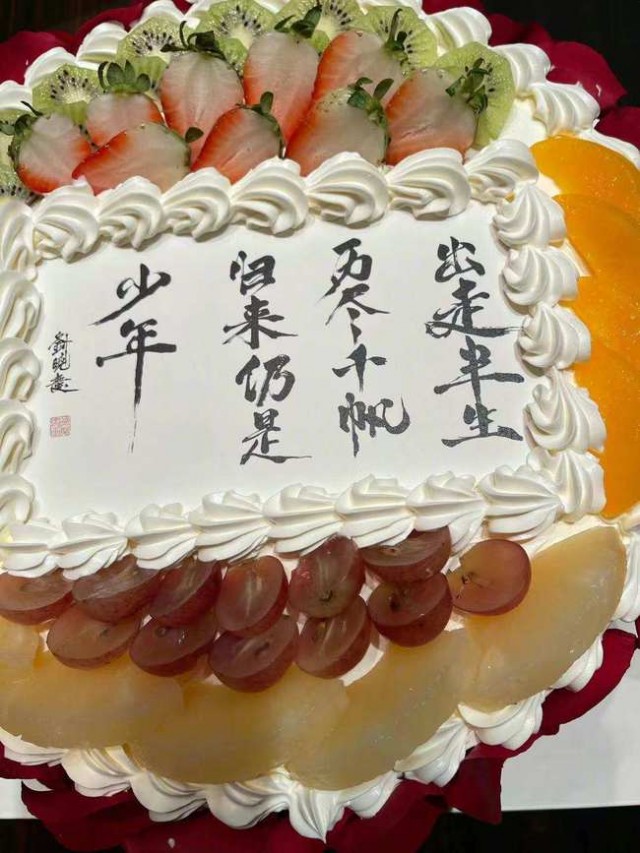 出走半生
历尽千帆
归来仍是
少年
劉晓慶